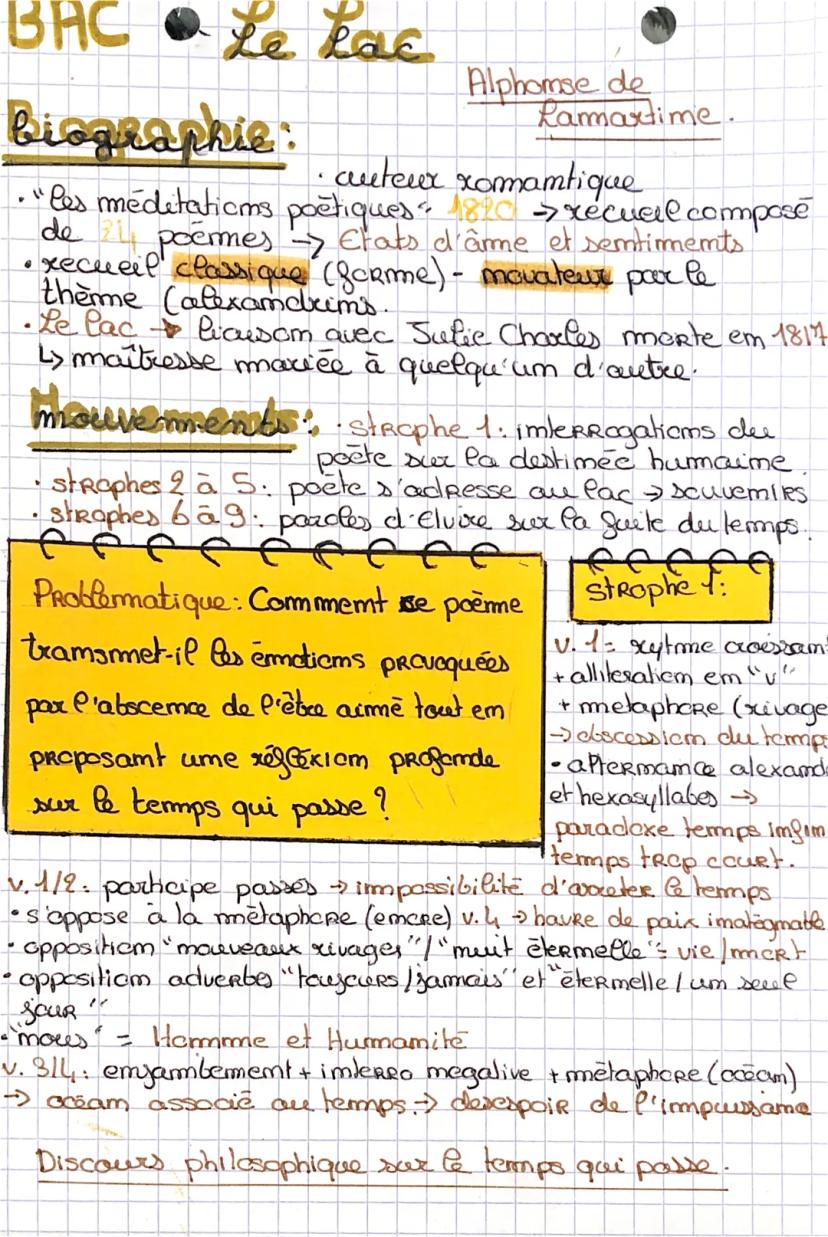 BAC • Le Lac
Alphonse de
Lamartine.
Biographie :
• auteur romantique
• "les méditations poëtiques" 1820 → recueil composé
de 24 poëmes → Etats d'âme et sentiments
• recueil classique (forme) - novateur par le
thème (alexandrins.
• Le lac → liaison avec Julie Charles morte en 1817
↳ maîtresse mariée à quelqu'un d'autre.
Mouvements : • strophe 1 : interrogations du
poëte sur la destinée humaine.
• strophes 2 à 5 : poëte s'adresse au lac → souvenirs
• strophes 6 à 9 : paroles d'Elvire sur la fuite du temps.
Problematique : Comment se poëme
transmet-il les émotions provoquées
par l'abscence de l'être aimé tout en
proposant une réfléxion profonde
sur le temps qui passe ?
strophe 1 :
v. 1 = rytme croissan
+ alliteration en "v"
+ metaphore (rivage
→ obscession du temps
• alternance alexand
et hexasyllabes →
paradoxe temps infin
temps trop court.
v. 1/2 : participe passés → impossibilité d'arreter le temps
• s'oppose à la métaphore (encre) v. 4 → havre de paix inategnable
• opposition "nouveaux rivages" / "nuit éternelle" = vie / mort
• opposition adverbes "toujours / jamais" et "éternelle / un seul
jour"
• "nous" = Homme et Humanité
v. 3/4 : enjambement + interro negative + métaphore (océan)
→ océan associé au temps. → desespoir de l'impuissance
Discours philosophique sur le temps qui passe.